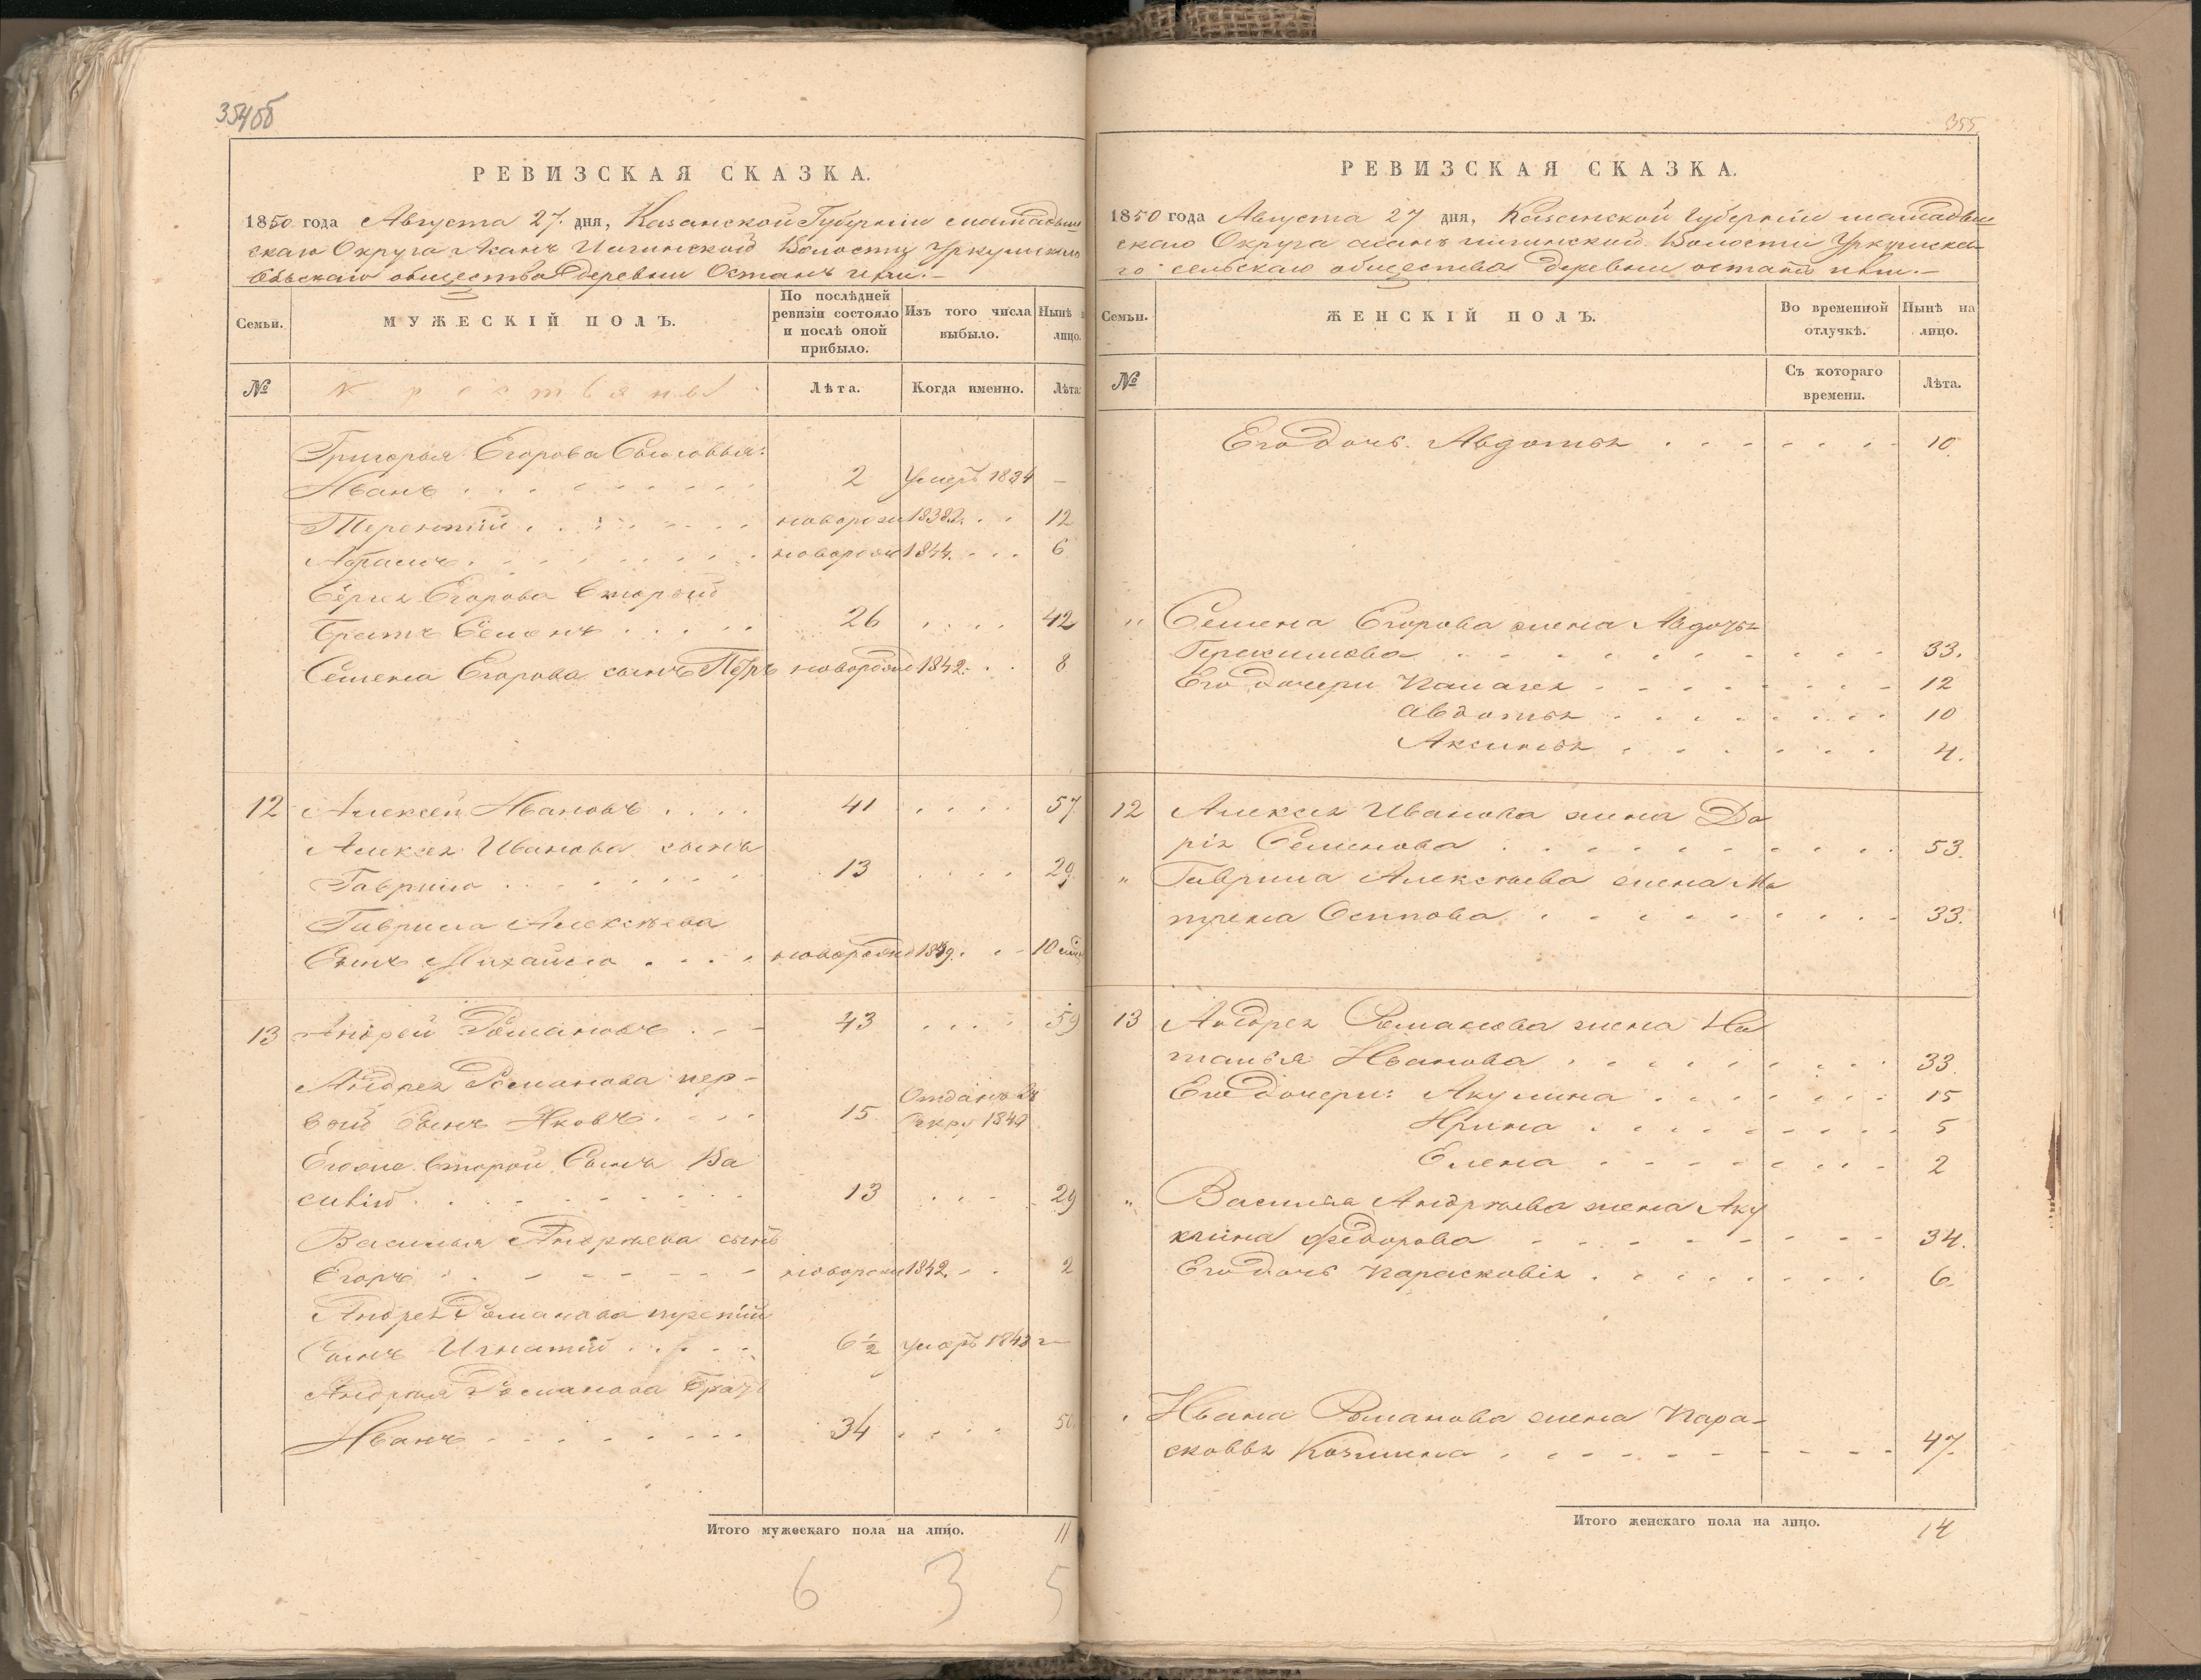 354об
РЕВИЗСКАЯ СКАЗКА.
1850 года Августа 27. дня, Казанской Губерніи мамадыш
скаго Округа Асанъ Илгинской Волости Уркушскаго
Сельскаго общества деревни Останъ
Семьи.
МУЖЕСКІЙ ПОЛЪ.
По послѣдней ревизіи состояло и послѣ оной прибыло.
Изъ того числа выбыло.
Нынѣ лицо.
№
Крестьяны
Лѣта.
Когда именно.
Лѣта.
Григорья Егорова Сыновья:
Иванъ 2 умеръ 1834 —
Терентій новорож 1838. 12
Абрамъ новорож 1844. 6
Сергея Егорова второй
братъ Семенъ 26 42
Семена Егорова сынъ Петръ новорожд 1842. 8
12 Алексей Ивановъ 41 57
Алексея Иванова сынъ
Гаврило 13 29.
Гаврила Алексѣева
Сынъ Михайло новорожд 1849. 10
13 Андрей Романовъ 43 59
Андрея Романова пер-
вой Сынъ Яковъ 15 Отданъ въ Рекру 1849
Егоже второй Сынъ Ва
силій 13 29
Василья Андрѣева сынъ
Егоръ новорож 1842. 2
Андрея Романова третій
Сынъ Игнатій 6½ умеръ 1843
Андрея Романова братъ
Иванъ 34 50.
Итого мужескаго пола на лицо. 11
6 3 5
355
РЕВИЗСКАЯ СКАЗКА.
1850 года Августа 27 дня, Казанской Губерніи мамадыш
скаго Округа асанъ илгинской Волости Уркушска
го сельскаго общества деревни останъ
Семьи.
ЖЕНСКІЙ ПОЛЪ.
Во временной отлучкѣ.
Нынѣ на лицо.
№
Съ котораго времени.
Лѣта.
Его дочь Авдотья 10
„ Семена Егорова жена Авдотья
Герасимова 33.
Его дочери Палагея 12
авдотья 10
Аксинья 4.
12 Алексея Иванова жена Да
рія Семенова 53.
„ Гаврила Алексѣева жена Ма
трена Осипова 33.
13 Андрея Романова жена На
талья Иванова 33
Его дочери: Акулина 15
Ирина 5
Елена 2
„ Василья Андрѣева жена Аку
лина федорова 34.
Его дочь парасковія 6.
Ивана Романова жена Пара-
сковья Козмина 47.
Итого женскаго пола на лицо. 14